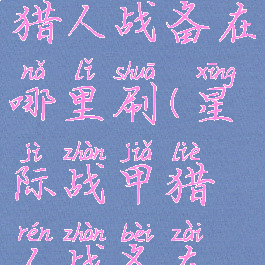 猎人战备在
nǎ lǐ shuā xīng
哪里刷(星
jì zhàn jiǎ liè
际战甲猎
rén zhàn bèi zài
人战备在